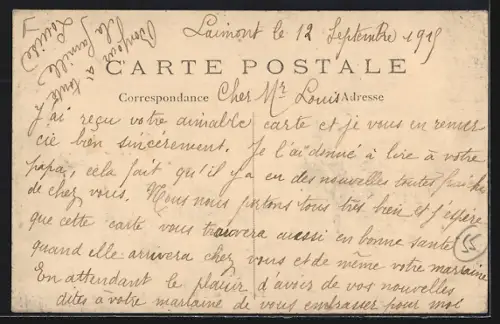 Laimont le 12 Septembre 1915
CARTE POSTALE
Correspondance Cher Mr Louis Adresse
J'ai reçu votre aimable carte et je vous en remer
cie bien sincèrement. Je l'ai donné à lire à votre
papa, cela fait qu'il y a eu des nouvelles toutes fraîches
de chez vous. Nous nous portons tous très bien et j'espère
que cette carte vous trouvera aussi en bonne santé
quand elle arrivera chez vous et de même votre marraine
En attendant le plaisir d'avoir de vos nouvelles
dites à votre marraine de vous embrasser pour moi
55
Bonjour à toute
la famille
Louise